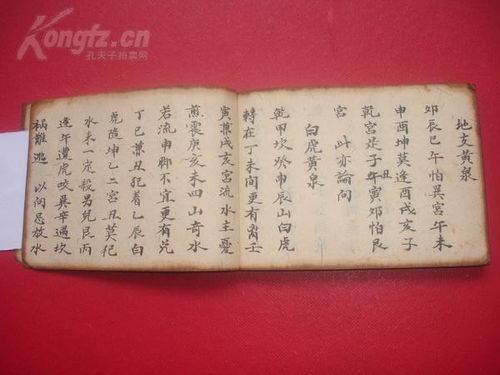 Kongfz.cn
孔夫子拍卖网
地支黃泉
卯辰巳午怕巽宮午未
申酉坤莫逢酉戌亥子
乾宮是子丑年寅卯怕艮
宮 此亦論向
白虎黃泉
乾甲坎癸申辰山白虎
轉在丁未间更有离壬
寅兼戌亥宮流水主憂
煎震庚亥未四山奇水
若流申卿不宜更有兑
丁巳兼丑犯着乙辰白
虎隨坤乙二宮丑莫犯
水来一定殺男兒艮丙
逢午遭虎咬巽辛遇坎
禍難逃 以向忌放水